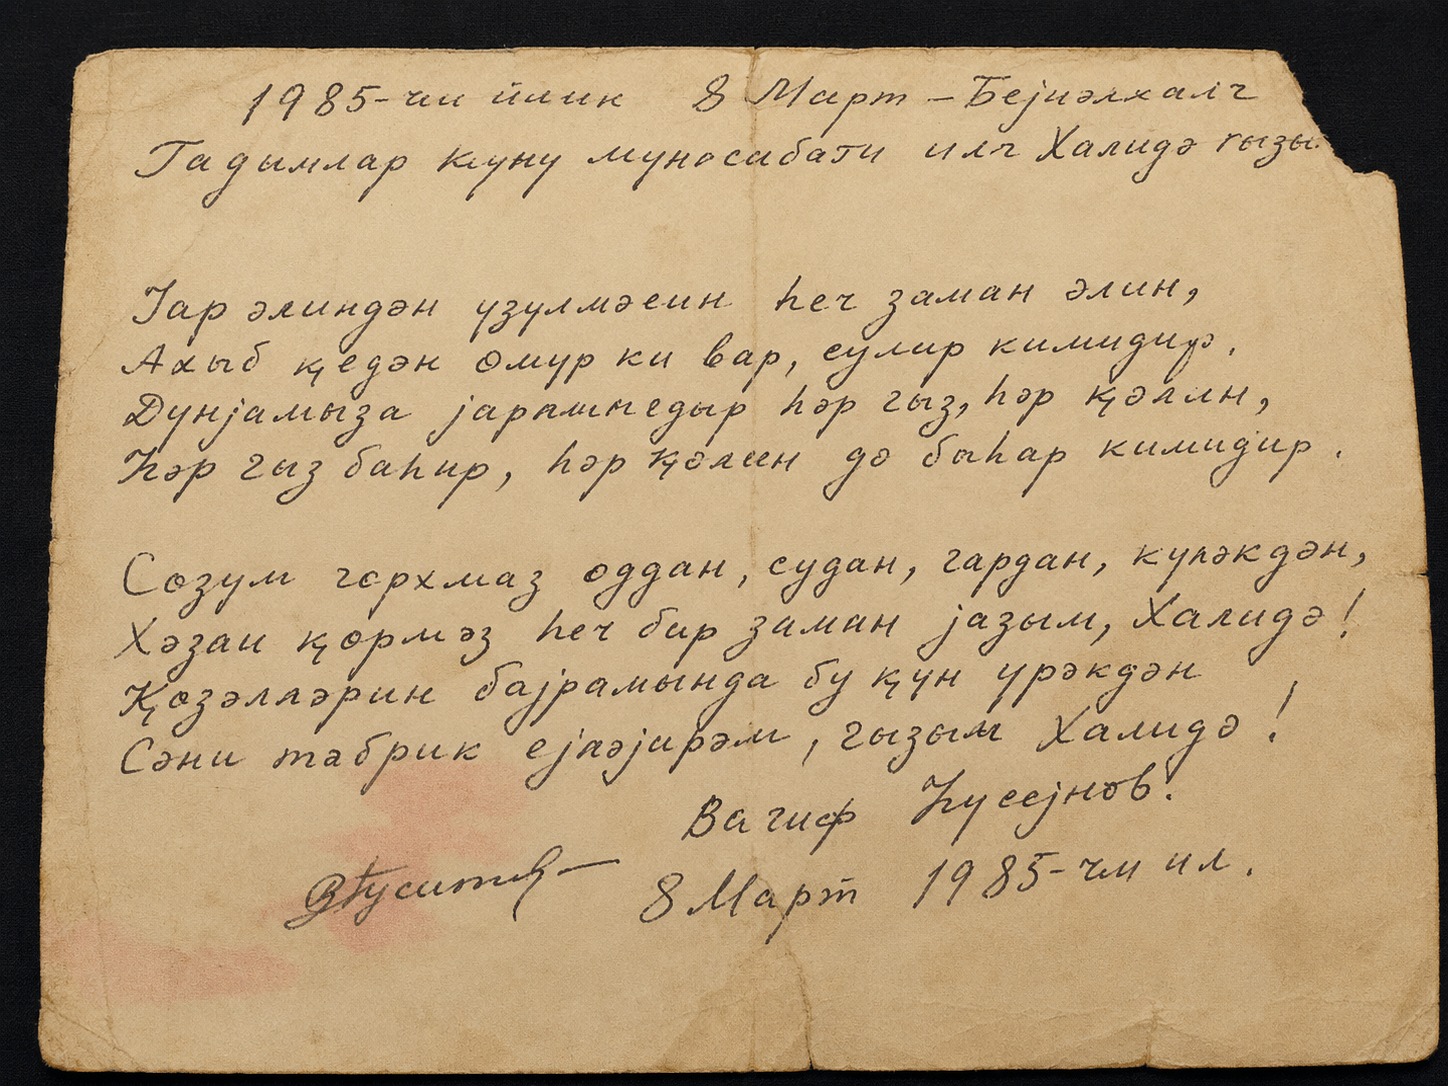 1985-чи йлик 8 Март – Бејнәлхалг
Гадымлар куну муносибати илч Халидә гызы
Јар әлиндән узулмәсин һеч заман әлин,
Ахыб қедән омур ки вар, сулир кимидир.
Дунјамыза јарашыгдыр һәр гыз, һәр қәлин,
Һәр гыз баһир, һәр қәлин дә баһар кимидир.
Созум горхмаз оддан, судан, гардан, куләкдән,
Хәзан қормәз һеч бир заман јазым, Халидә!
Қозәлләрин бајрамында бу қун урәкдән
Сәни тәбрик ејләјирәм, гызым Халидә!
Вагиф Һусејнов.
8 Март 1985-чи ил.